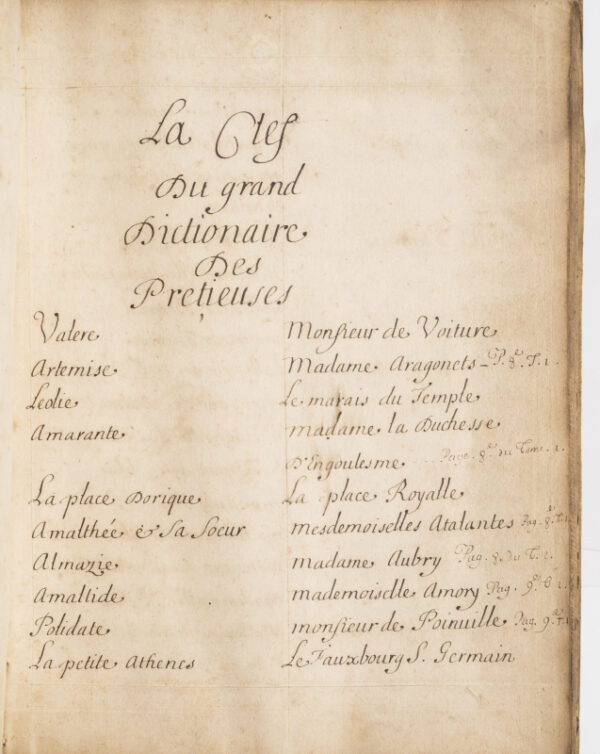 La Clef
Du grand
Dictionaire
Des
Pretieuses
Valere Monsieur de Voiture
Artemise Madame Aragonets - P. 8.e T. 1.
Leolie Le marais du Temple
Amarante madame la Duchesse
D'Engoulesme Page 8.e du Tome 1.
La place Dorique La place Royalle
Amalthée & Sa Soeur mesdemoiselles Atalantes Pag. 8.e T. 1.
Almazie madame Aubry Pag. 8 Du T. 1.
Amaltide mademoiselle Amory Pag. 9.e T. 1.
Polidate monsieur de Poinville Pag. 9.e T. 1.
La petite Athenes Le Fauxbourg S. Germain